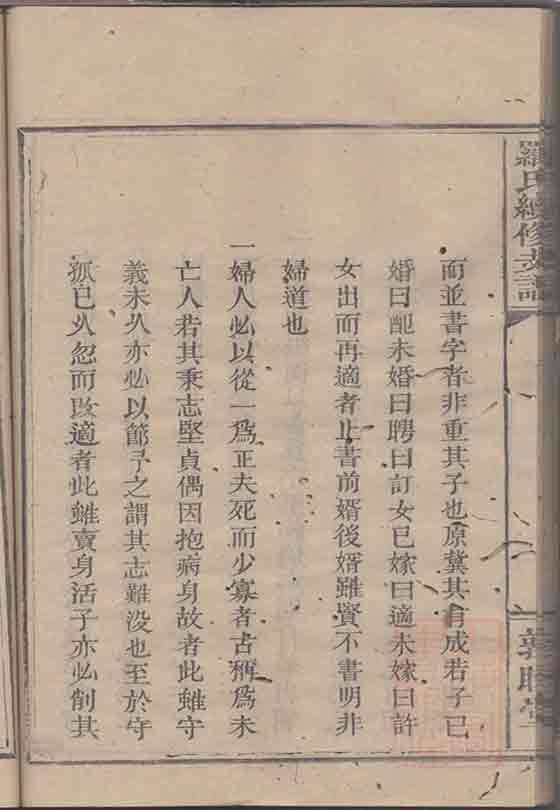 羅氏續修支譜
而並書字者非重其子也原冀其有成若子已
婚曰配未婚曰聘曰訂女已嫁曰適未嫁曰許
女出而再適者止書前婿後婿雖賢不書明非
婦道也
一婦人必以從一爲正夫死而少寡者古稱爲未
亡人若其秉志堅貞偶因抱病身故者此雖守
義未久亦必以節予之謂其志難没也至於守
孤已久忽而改適者此雖賣身活子亦必削其
堂